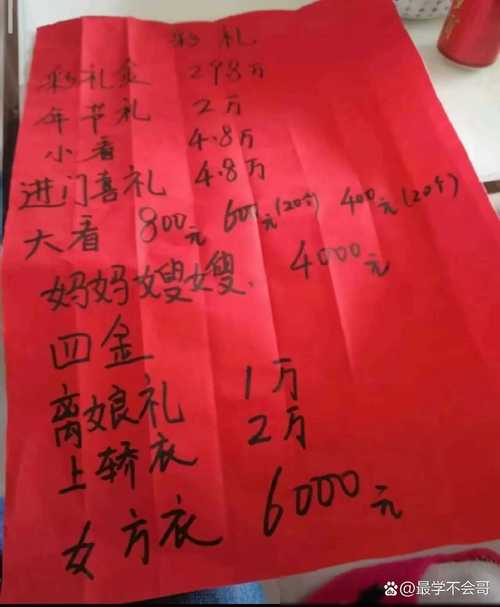 彩礼
彩礼金 298万
年节礼 2万
小看 4.8万
进门喜礼 4.8万
大看 800元 600元(20个) 400元(20个)
妈妈嫂嫂. 4000元
四金
离娘礼 1万
上轿衣 2万
女方衣 6000元
@最学不会哥